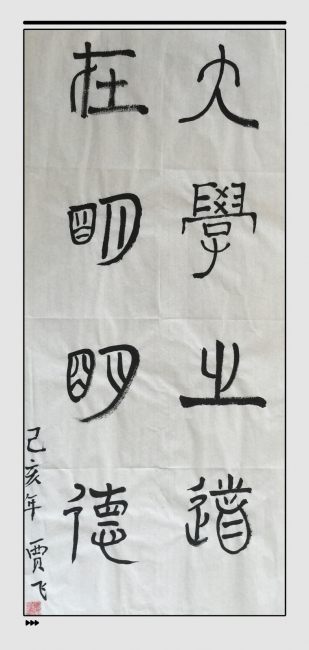 大學之道
在明明德
己亥年 贾飞